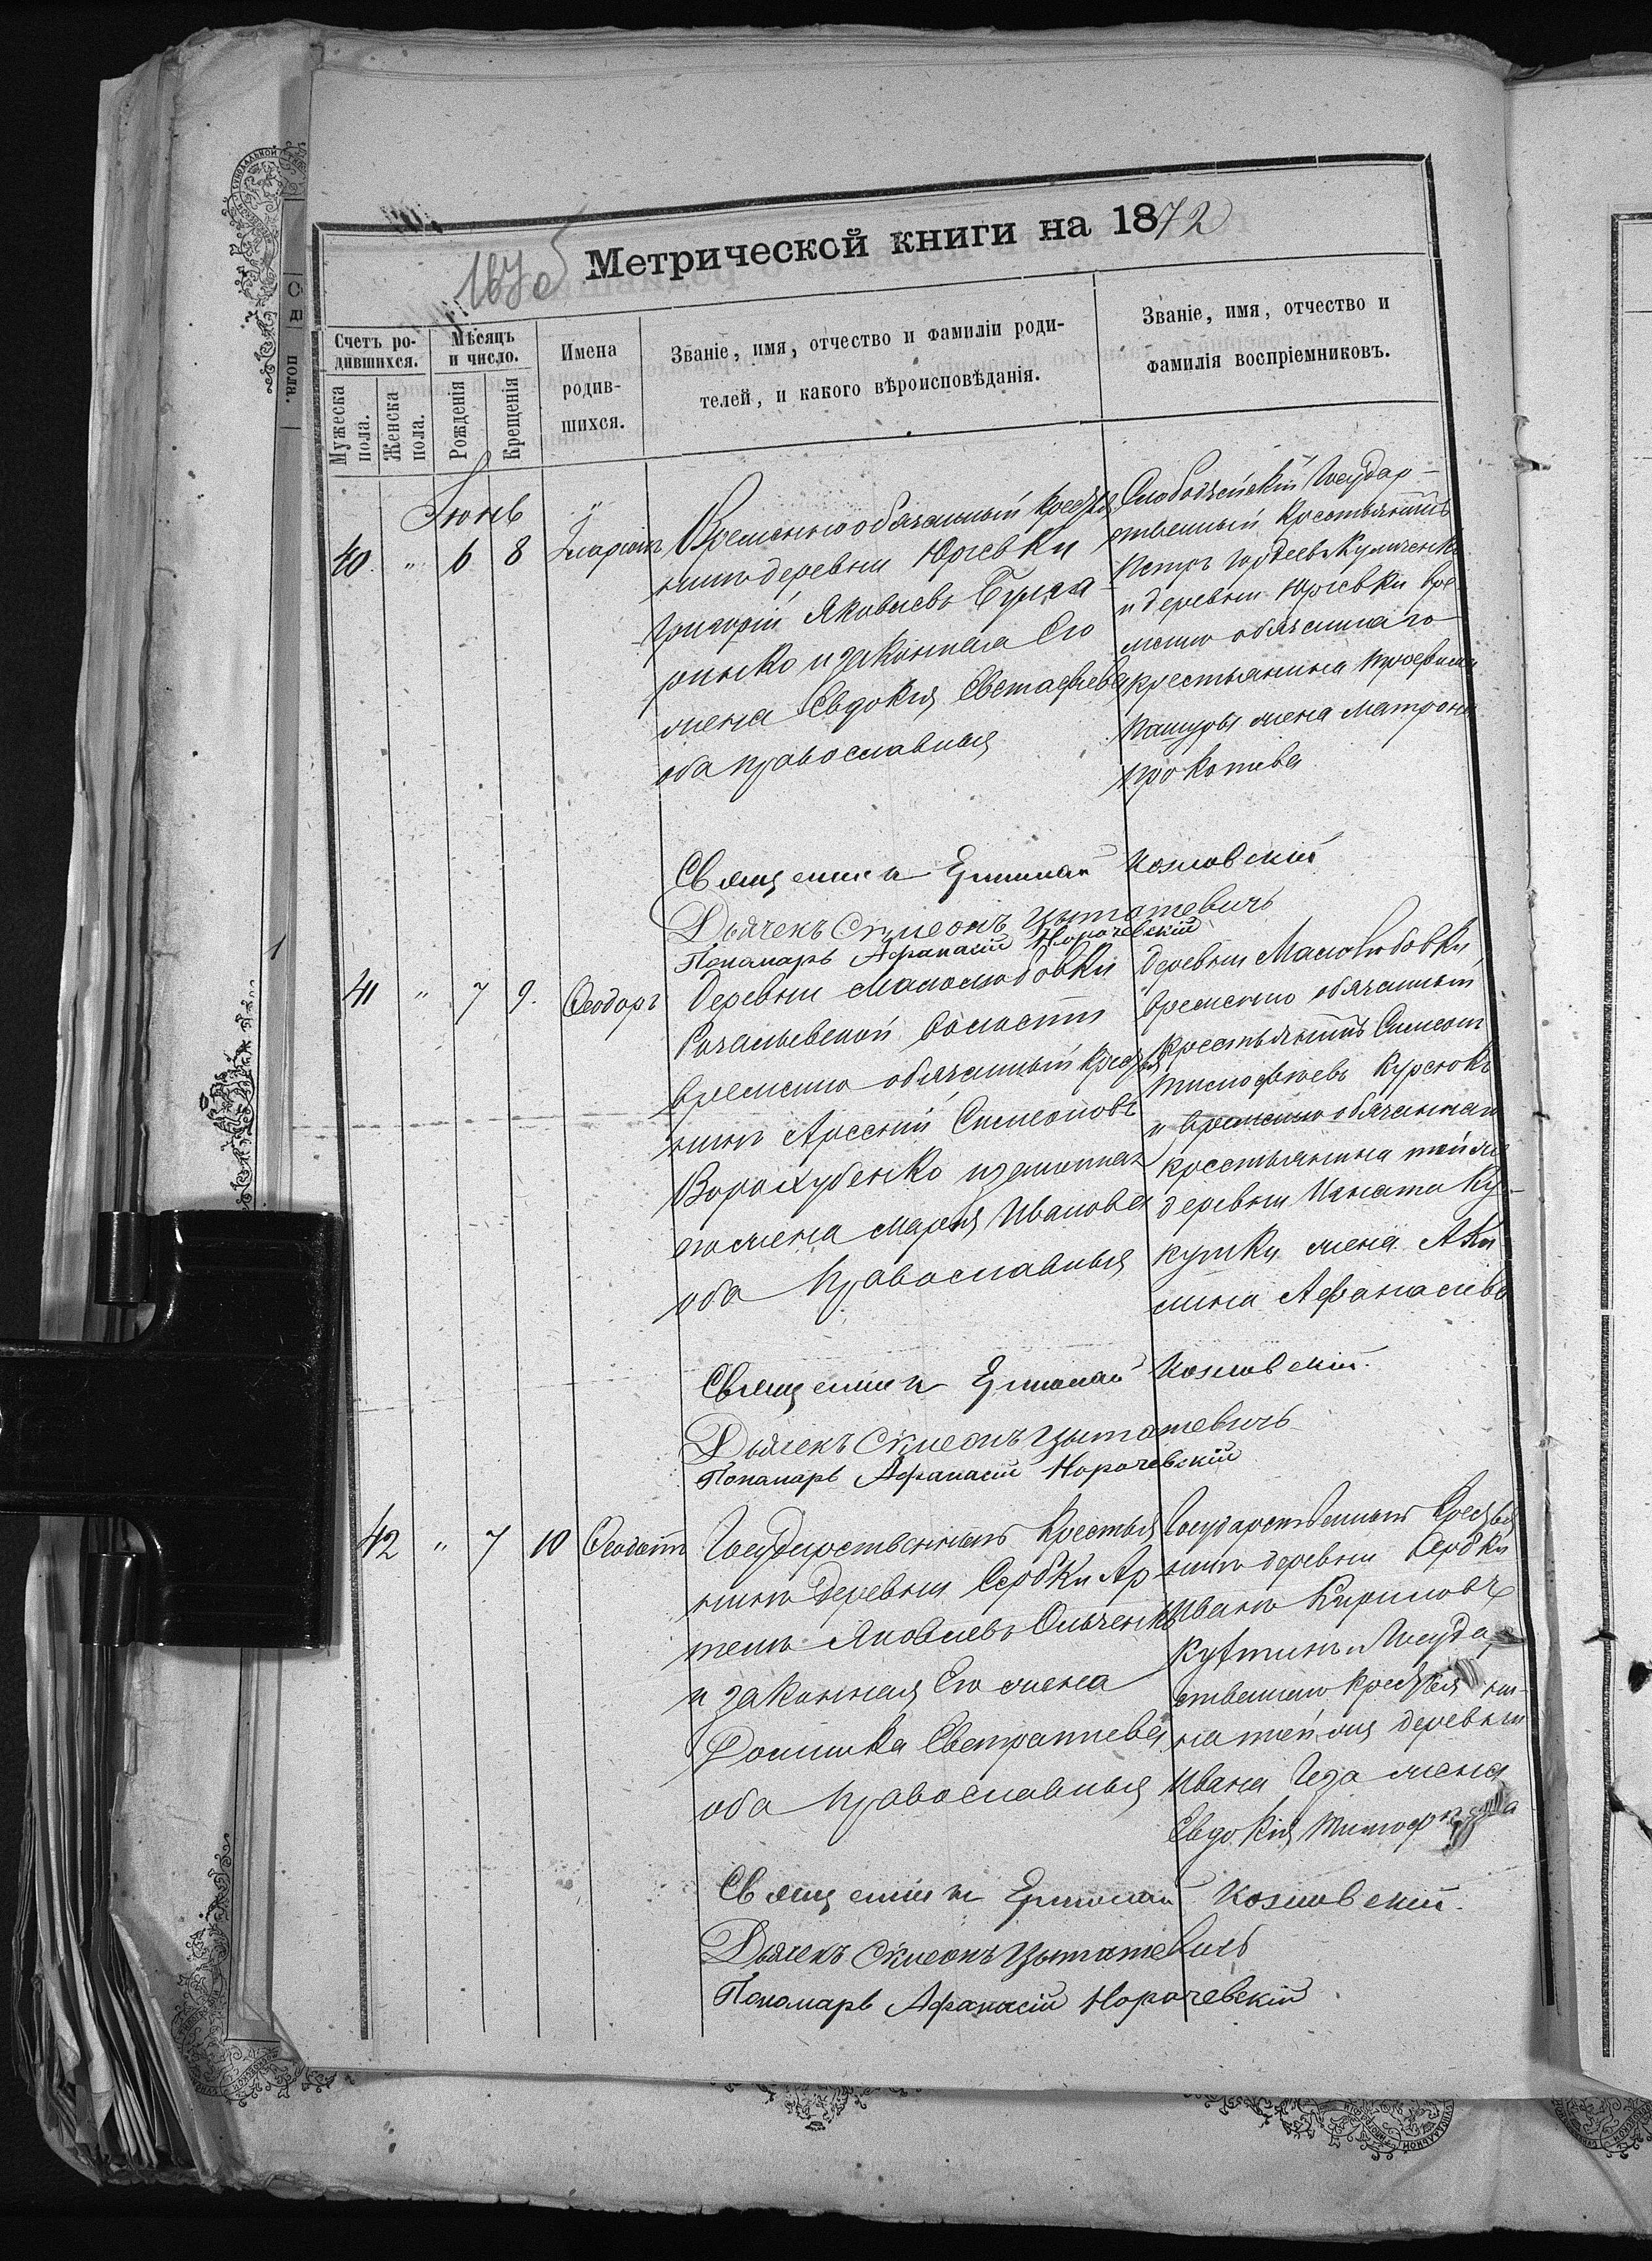 Метрической книги на 1872
Счетъ ро-
дившихся.
Мужеска
пола.
Женска
пола.
Мѣсяцъ
и число.
Рожденія
Крещенія
Имена
родив-
шихся.
Званіе, имя, отчество и фамиліи роди-
телей, и какого вѣроисповѣданія.
Званіе, имя, отчество и
фамилія воспріемниковъ.
Іюнь
40. " 6 8
Временно обязанный крестья
нинъ деревни Юрьевки
Григорій Яковлевъ
и законная Его
жена Евдокія Евстафіева
оба православныя
Государ-
ственный Крестьянинъ
Петръ Гордеевъ
и деревни Юрьевки вре-
менно обязаннаго
крестьянина Трофима
жена Матрона
Прокопіева
Священникъ Ермолай Козловскій
Дьячекъ Симеонъ Цытатевичъ
Пономарь Афанасій Норочевскій
41 " 7 9. Ѳеодоръ
Деревни Малолюбовки
волости
временно обязанный крестья
нинъ Арсеній Симеоновъ
Ворохубенко и законная
его жена Марія Иванова
оба Православныя
деревни Малолюбовки
временно обязанный
Крестьянинъ Симеонъ
Тимофѣевъ Курсокъ
и временно обязаннаго
крестьянина той же
деревни Игната Ку-
кушки жена Аку
лина Афанасіева
Священникъ Ермолай Козловскій.
Дьячекъ Симеонъ Цытатевичъ
Пономарь Афанасій Норочевскій
42 " 7 10 Ѳеодотъ
Государственный Крестья
нинъ деревни Сербки Ар
темъ Яковлевъ Ольченко
и законная Его жена
Домника Евстратіева
оба Православныя
Государственный Крестья
нинъ деревни Сербки
Иванъ Кириловъ
и Государ
ственнаго крестьяни-
на той же деревни
Ивана Геза жена
Евдокія
Священникъ Ермолай Козловскій.
Дьячекъ Симеонъ Цытатевичъ
Пономарь Афанасій Норочевскій